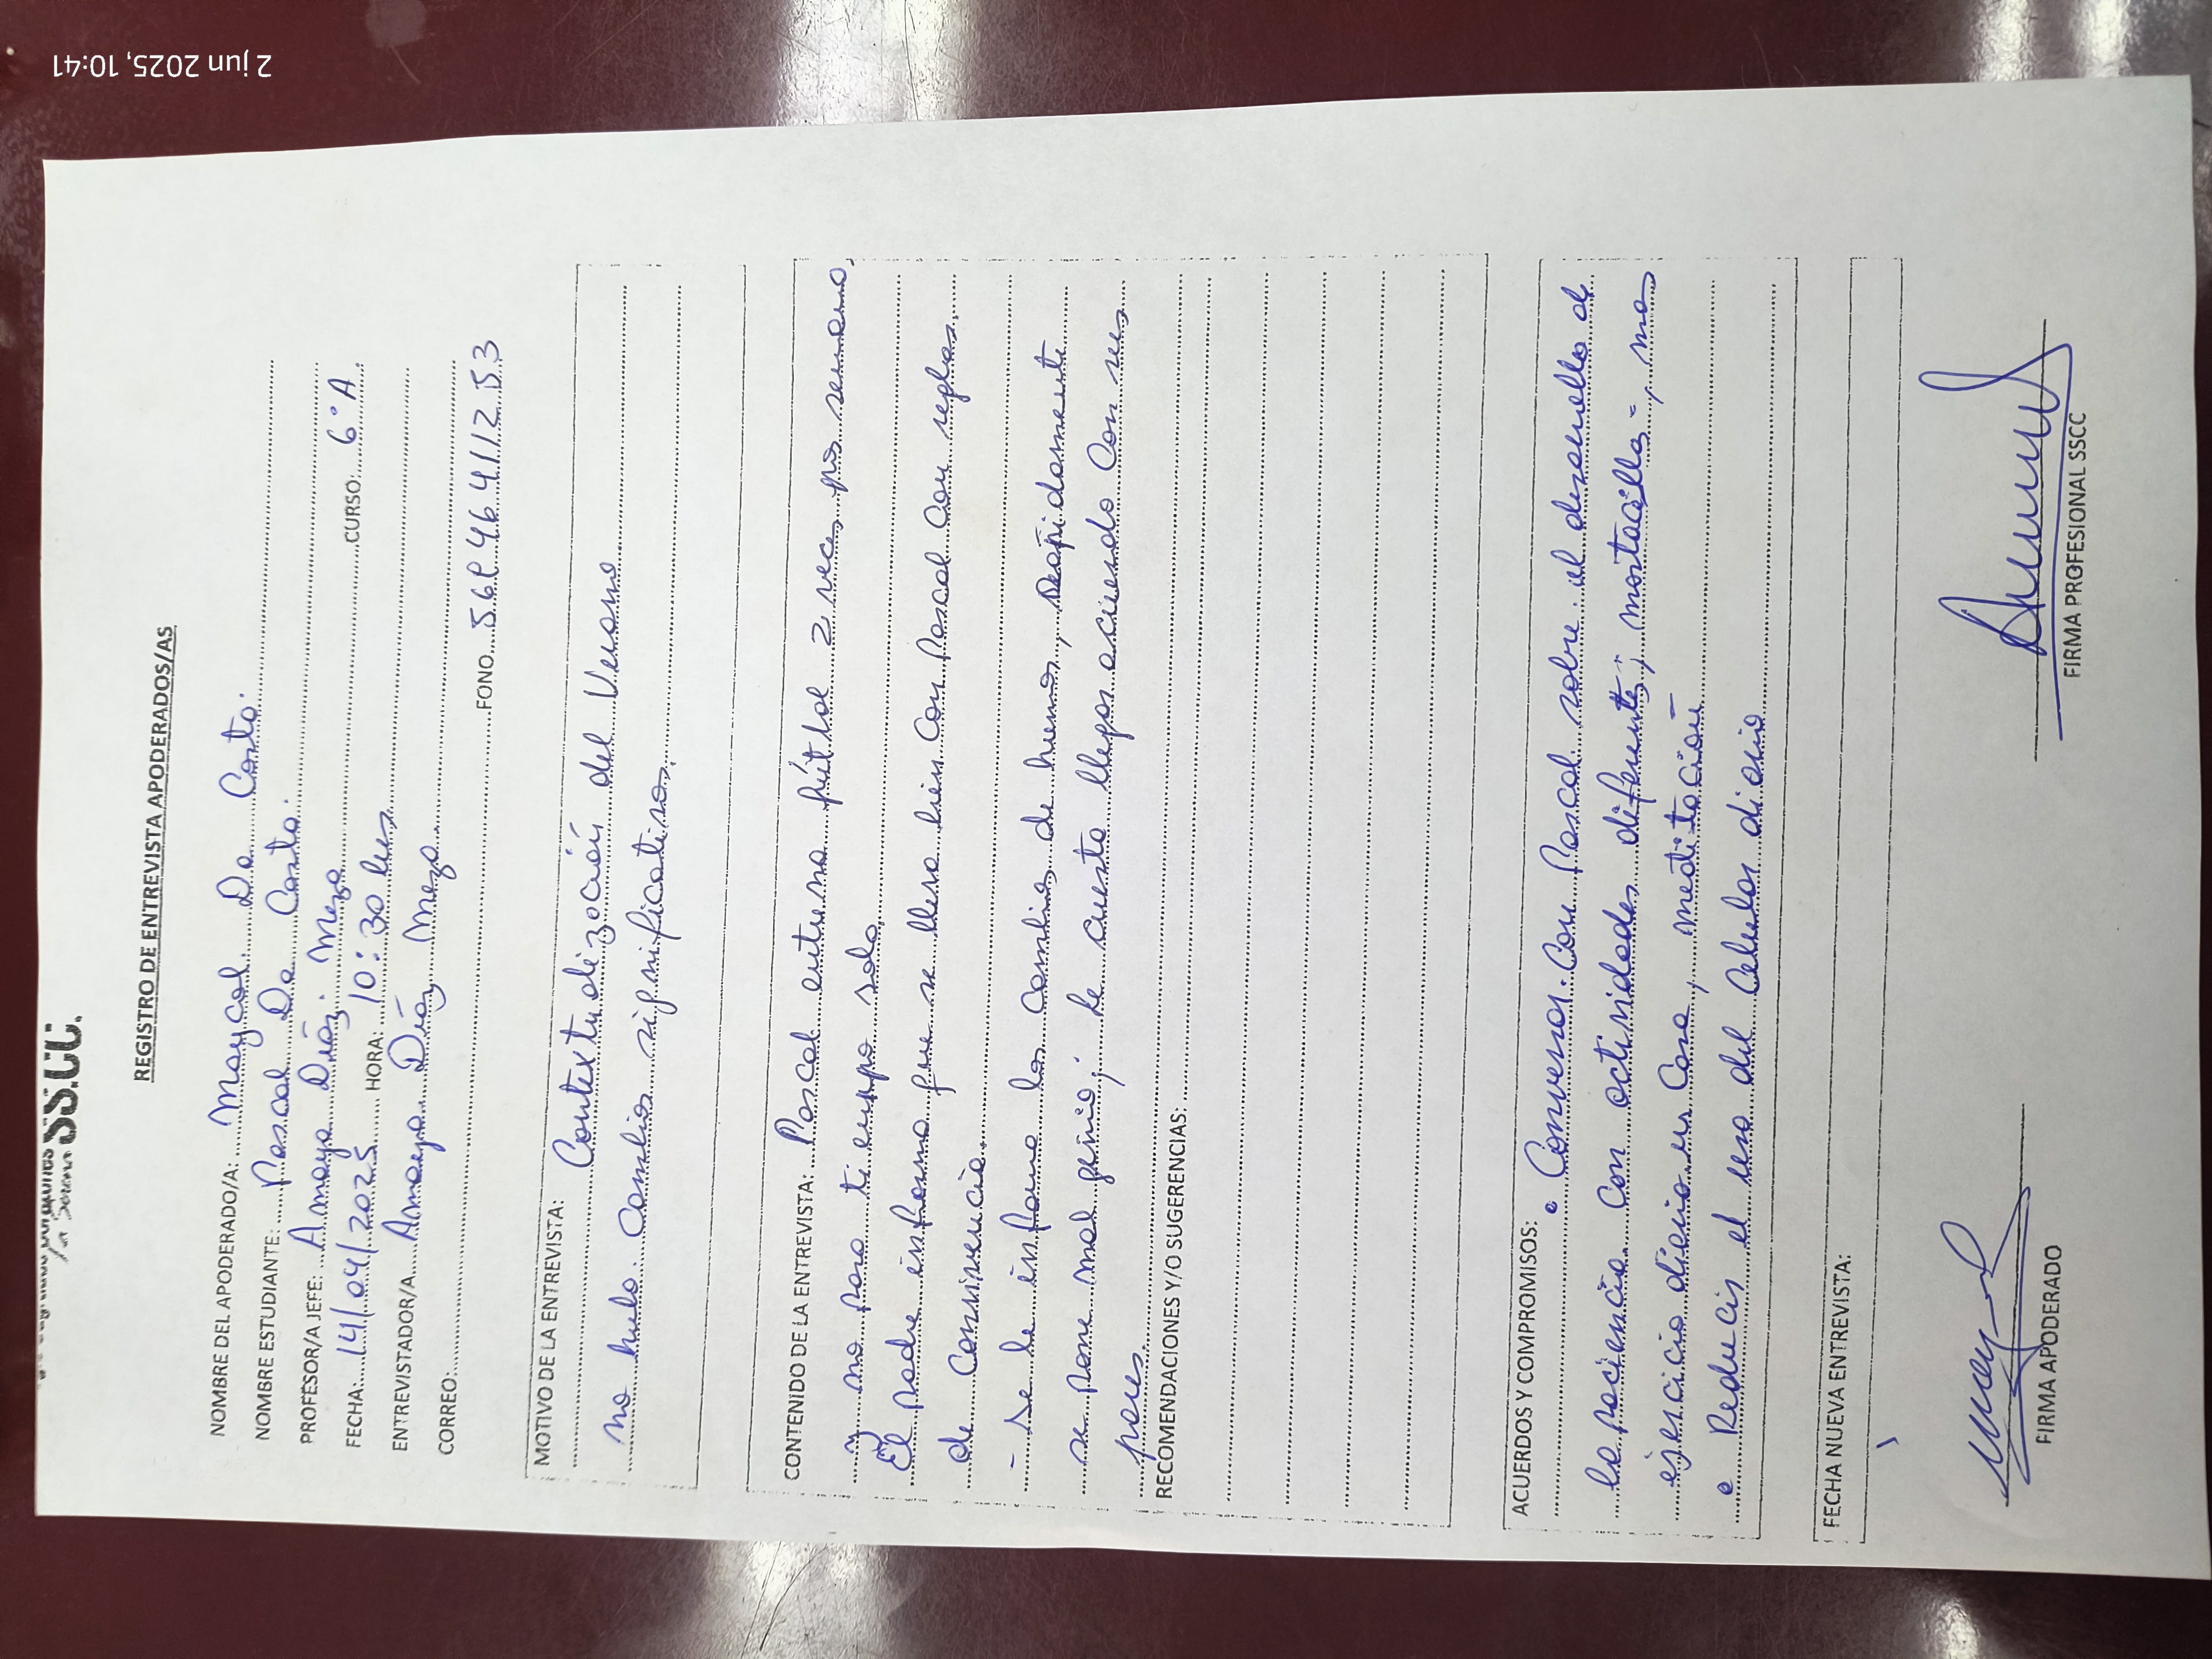 SS.CC.
La Serena
REGISTRO DE ENTREVISTA APODERADOS/AS
NOMBRE DEL APODERADO/A: Maycol Da Costa.
NOMBRE ESTUDIANTE: Pascal Da Costa.
PROFESOR/A JEFE: Amaya Díaz Meza
FECHA: 14/04/2025 HORA: 10:30 hrs CURSO: 6°A
ENTREVISTADOR/A Amaya Díaz Meza
CORREO:
FONO 569 46 41 12 53
MOTIVO DE LA ENTREVISTA:
Contextualización del Verano
no hubo cambios significativos.
CONTENIDO DE LA ENTREVISTA: Pascal entrena fútbol 2 veces por semana
y no pasa tiempo solo.
El padre informa que se lleva bien con Pascal con reglas
de convivencia.
- Se le informa los cambios de humor,
se pone mal genio; le cuesta llegar acuerdo con sus
pares.
RECOMENDACIONES Y/O SUGERENCIAS:
ACUERDOS Y COMPROMISOS:
• Conversar con Pascal sobre el desarrollo de
la paciencia con actividades diferentes; mostacilla -, mas
ejercicio diario en casa, meditación
• Reducir el uso del celular diario
FECHA NUEVA ENTREVISTA:
FIRMA APODERADO
FIRMA PROFESIONAL SSCC
2 jun 2025, 10:41